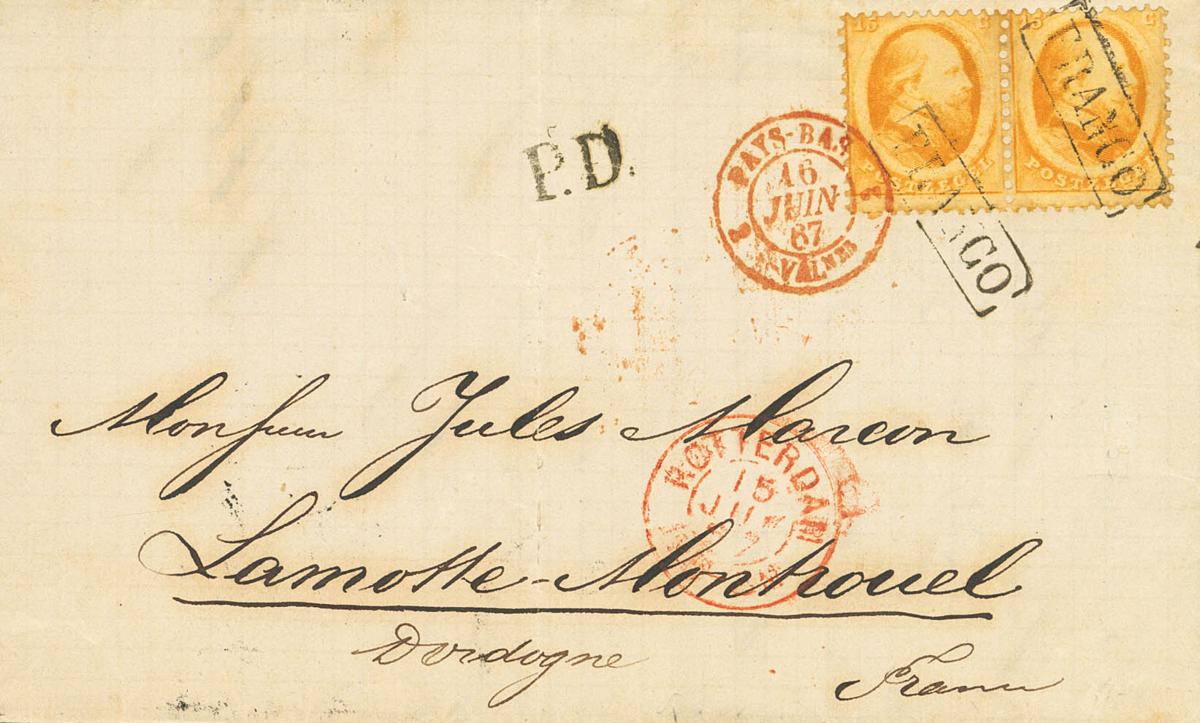 15 C 15 C
POSTZEGEL POSTZEGEL
FRANCO
FRANCO
P.D.
PAYS-BAS
16
JUIN
67
2 VALNES 2
Monsieur Jules Marcon
ROTTERDAM
15
JUN
67
Lamothe-Montravel
Dordogne
France